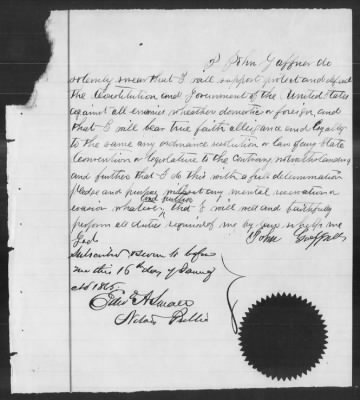 I John Gaffner do
solemnly swear that I will support protect and defend
the Constitution and Government of the United States
against all enemies, wheather domestic or foreign, and
that I will bear true faith allegance and loyalty
to the same any ordinance resolution or law of any State
Convention or legislature to the Contrary notwithstanding
and further that I do this with a full determination
pledge and purpose without any mental reservation or
evasion whatever, and further that I will well and faithfully
perform all duties required of me by law so help me
God
John Gaffner
Subscribed & sworn to before
me this 16th day of
AD 1865
Edw A Small
Notary Public